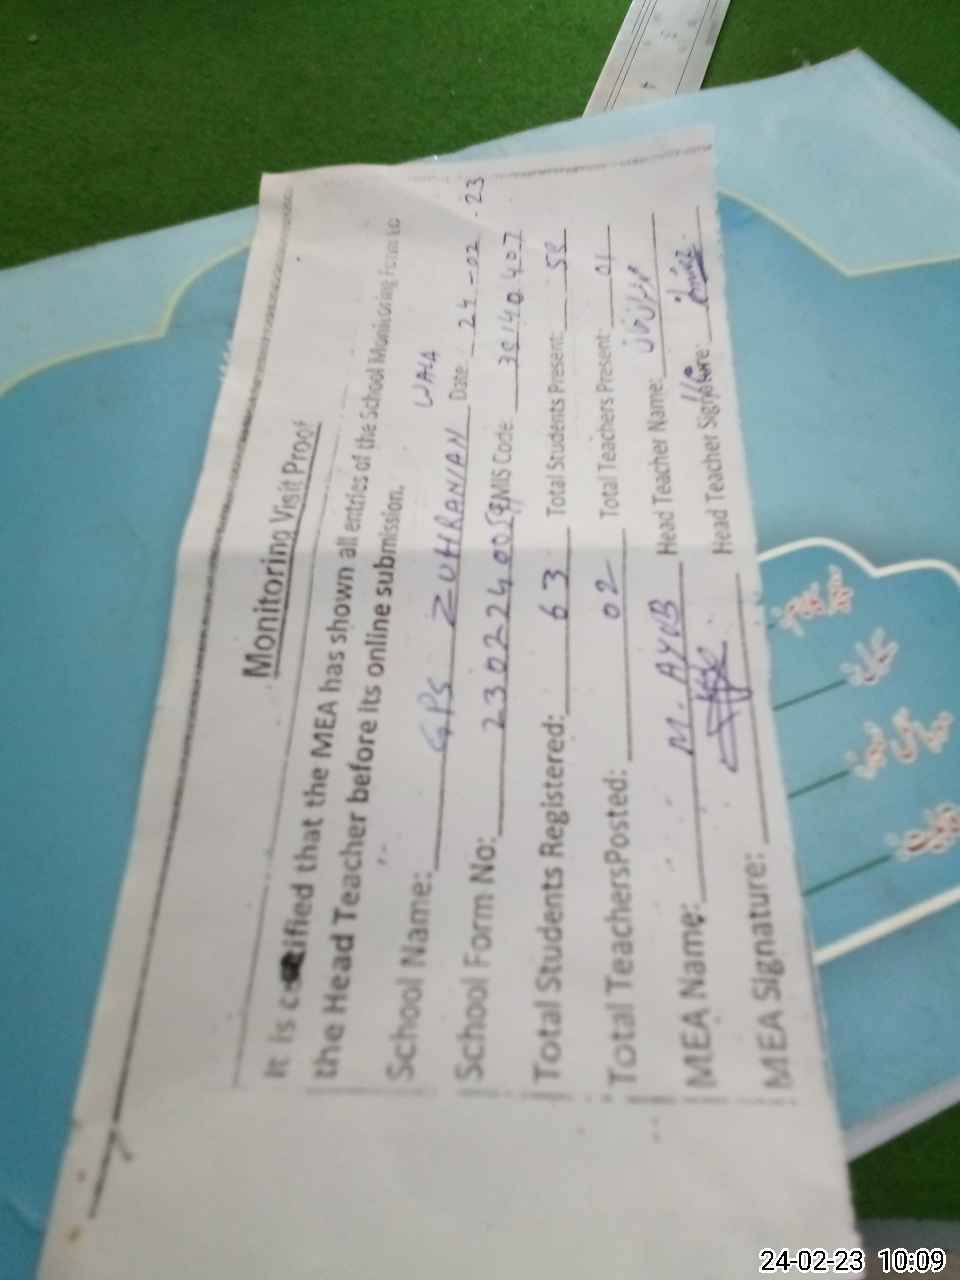 Monitoring Visit Proof
It is certified that the MEA has shown all entries of the School Monitoring Form to
the Head Teacher before its online submission.
School Name: GPS ZUHRANIAN WALA Date: 24-02-23
School Form No: EMIS Code
Total Students Registered: 63 Total Students Present: 58
Total TeachersPosted: 02 Total Teachers Present: 01
MEA Name: M. AYUB Head Teacher Name:
MEA Signature: Head Teacher Signature:
24-02-23 10:09